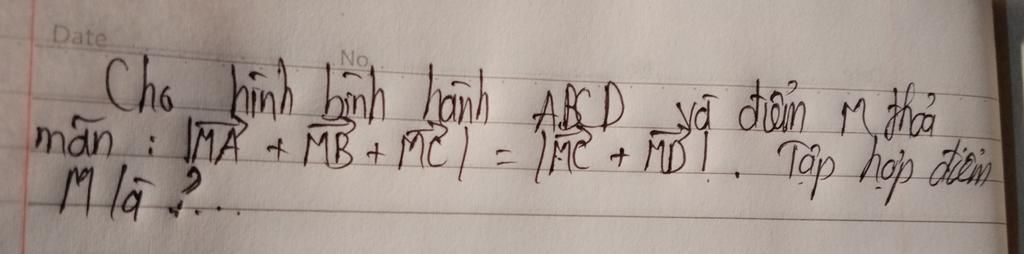 Date
No
Cho hình bình hành ABCD và điểm M thỏa
mãn : |MA + MB + MC| = |MC + MD| . Tập hợp điểm
M là ?...